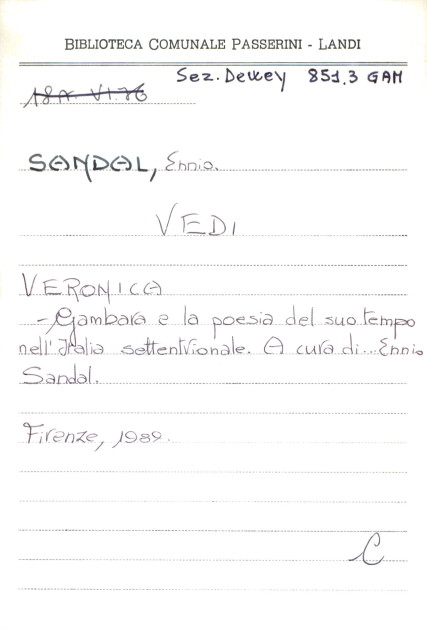 BIBLIOTECA COMUNALE PASSERINI - LANDI
Sez. Dewey 851.3 GAM
18A. VI. 76
SANDAL, Ennio.
VEDI
VERONICA
- Gambara e la poesia del suo tempo
nell'Italia settentrionale. A cura di... Ennio
Sandal.
Firenze, 1989.
C